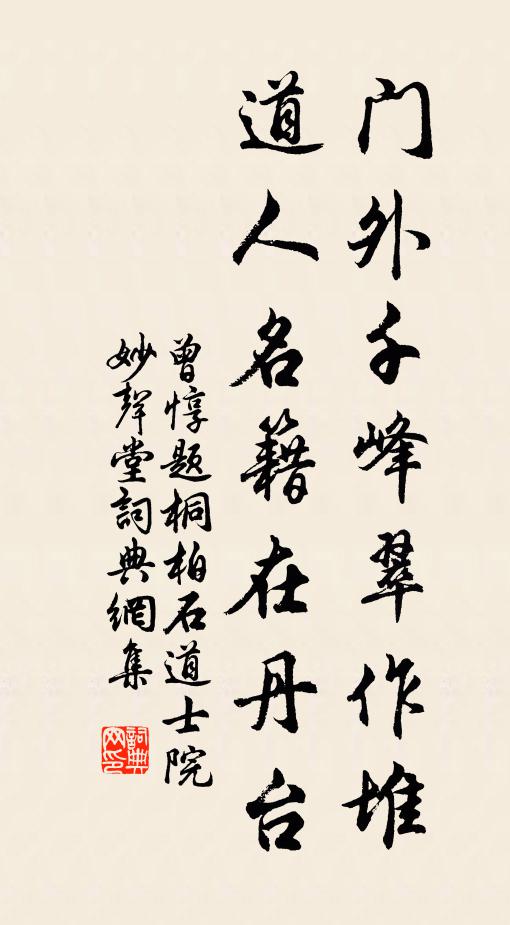 门外千峰翠作堆
道人名籍在丹台
曾惇题桐柏石道士院
妙聲堂詞典網集
詞典
网印